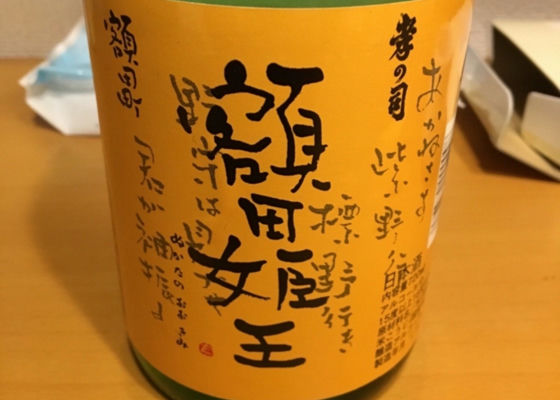 孝の司
あかねさす
紫野行
標野行き
額田姫王
ぬかたのおおきみ
野守は見
君が袖振る
額田町
日本酒
内容量